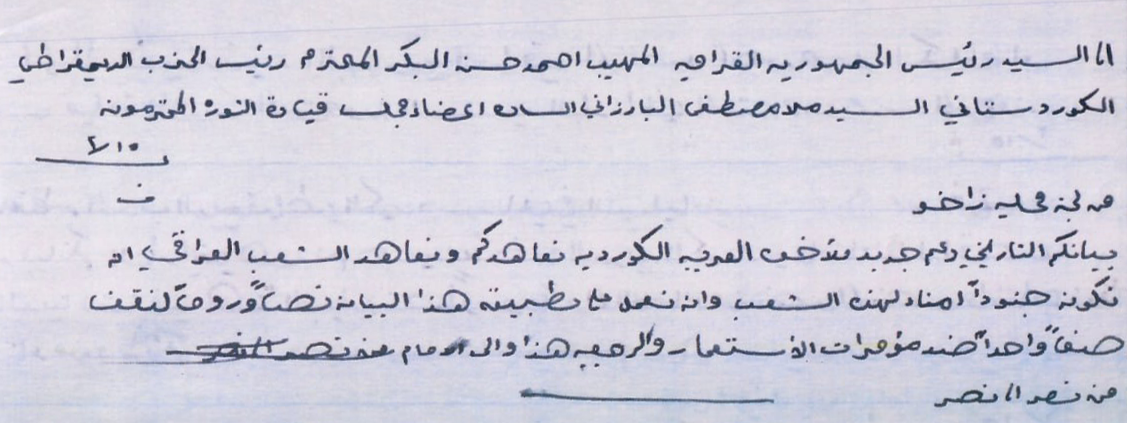 الى السيد رئيس الجمهوريه العراقيه المهيب احمد حسن البكر المحترم رئيس الحزب الديمقراطي
الكوردستاني السيد ملا مصطفى البارزاني الساده اعضاء مجلس قيادة الثوره المحترمون
من لجنة محليه زاخو
بيانكم التاريخي دعم جديد العربيه الكورديه نعاهدكم ونعاهد الشعب العراقي ان
نكون جنوداً امناء لهذه الشعب وان نعمل على تطبيق هذا البيان نصاً وروحاً لنقف
صفاً واحداً ضد مؤمرات الأستعمار والرجعيه هذا والى الامام
من نصر الى نصر